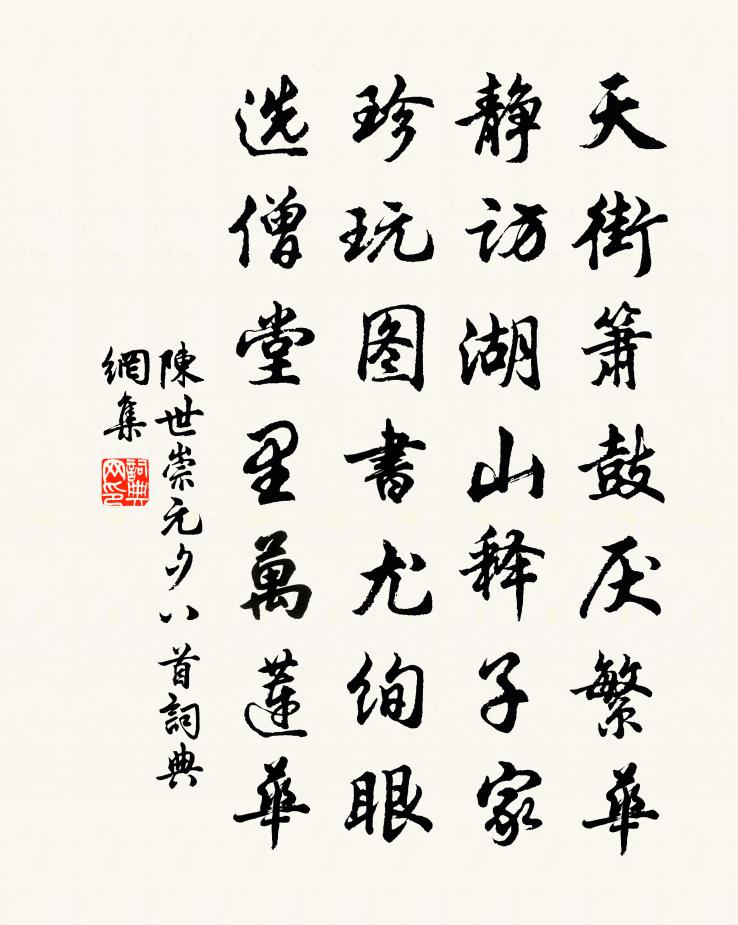 天街箫鼓厌繁華
静访湖山释子家
珍玩图書尤绚眼
选僧堂里萬蓮華
陳世崇元夕八首詞典
網集
詞典網印